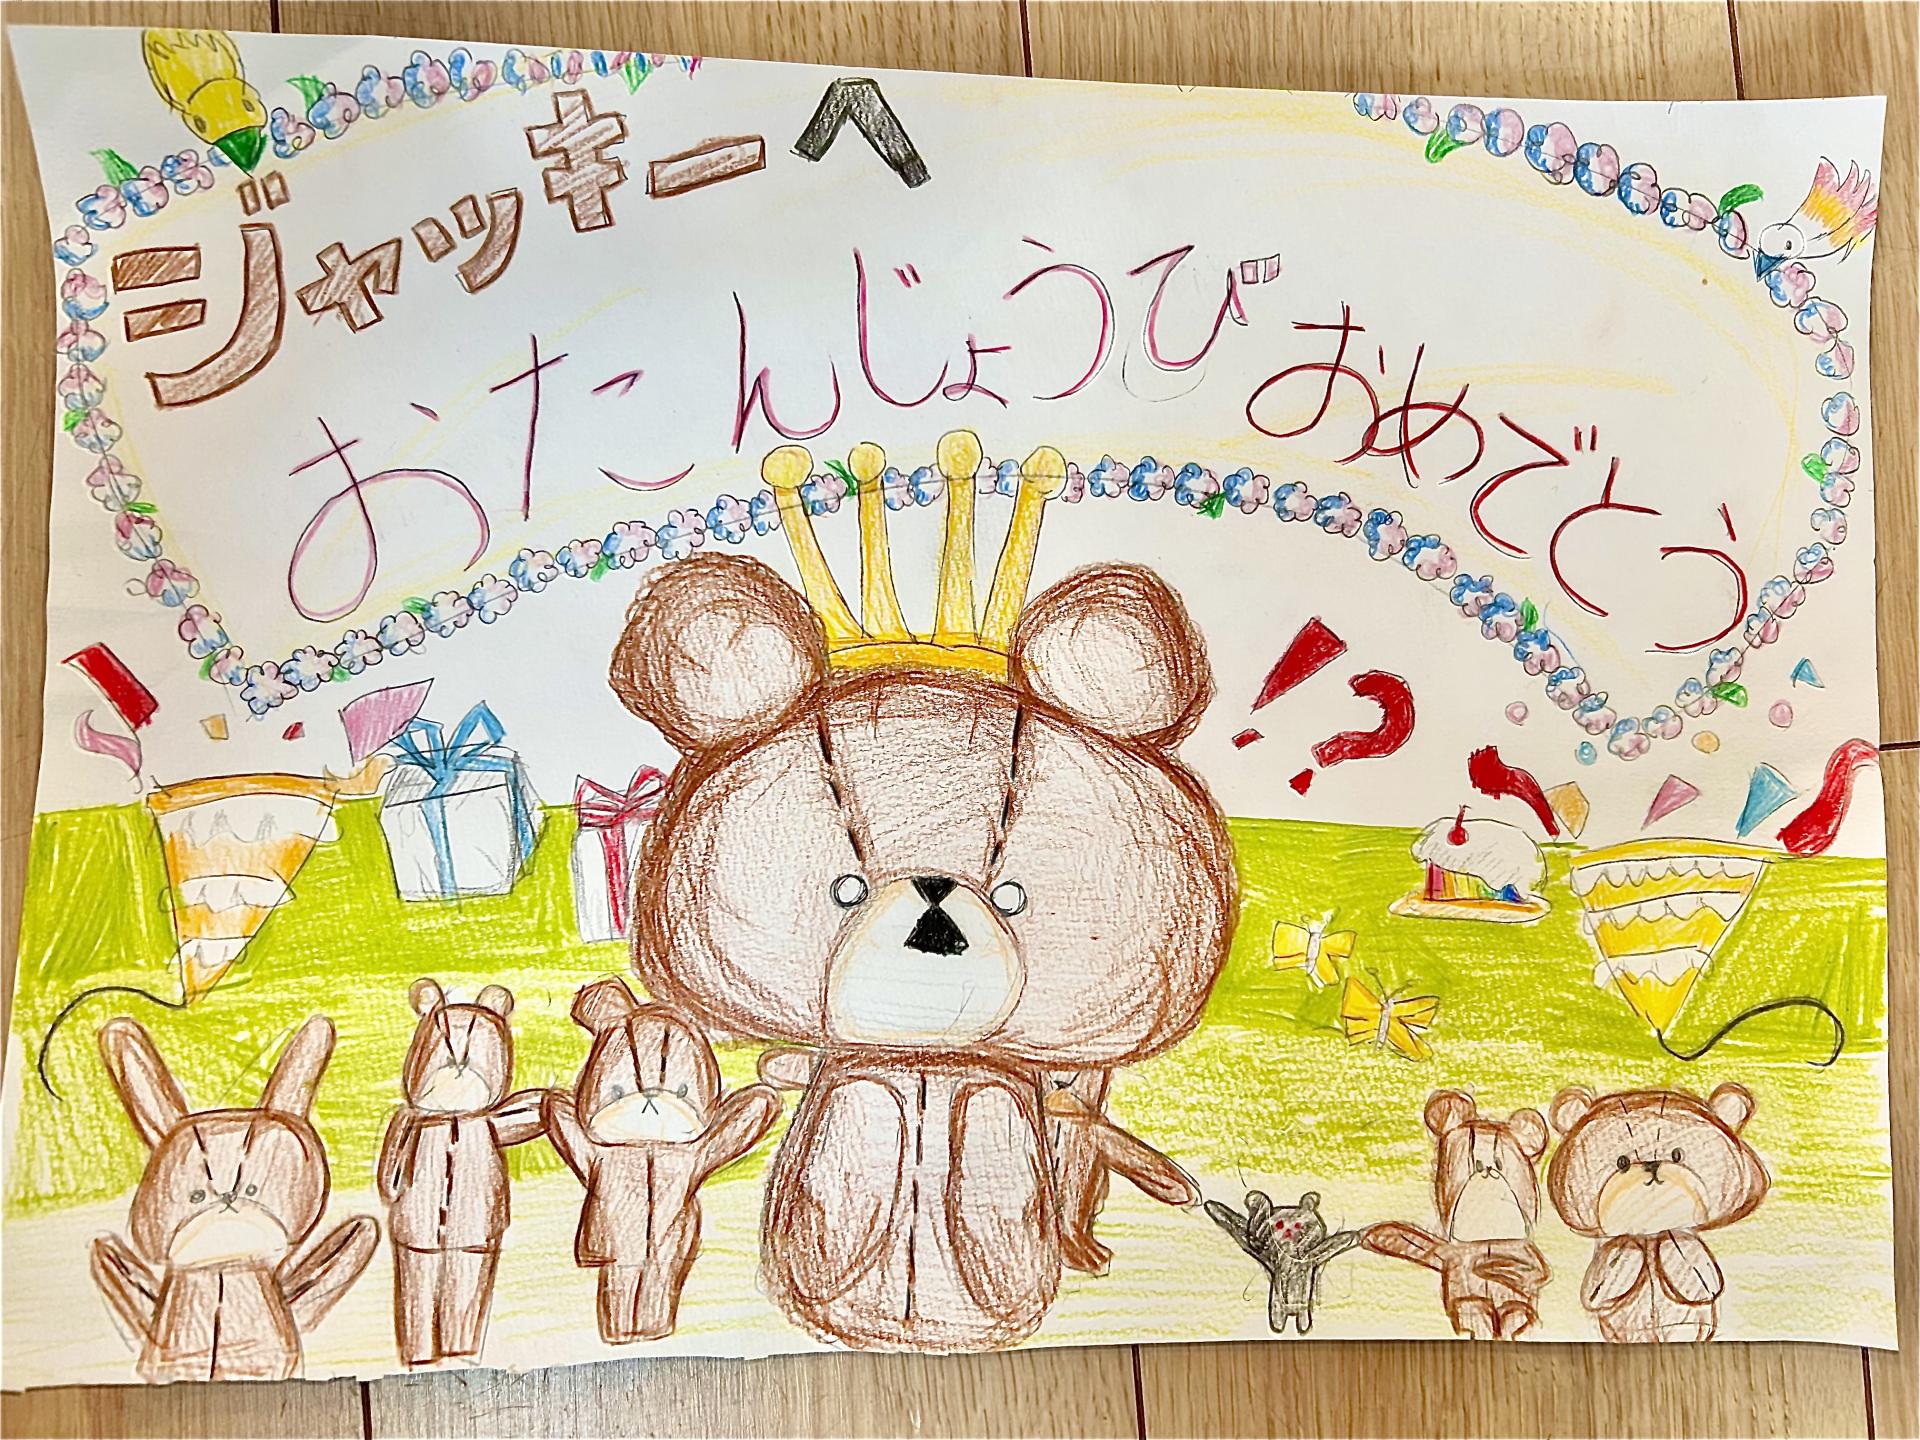 ジャッキーへ
おたんじょうび おめでとう
!?